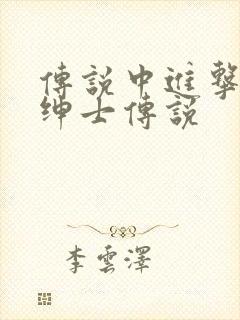 傳說中進擊
紳士傳說
李雲澤